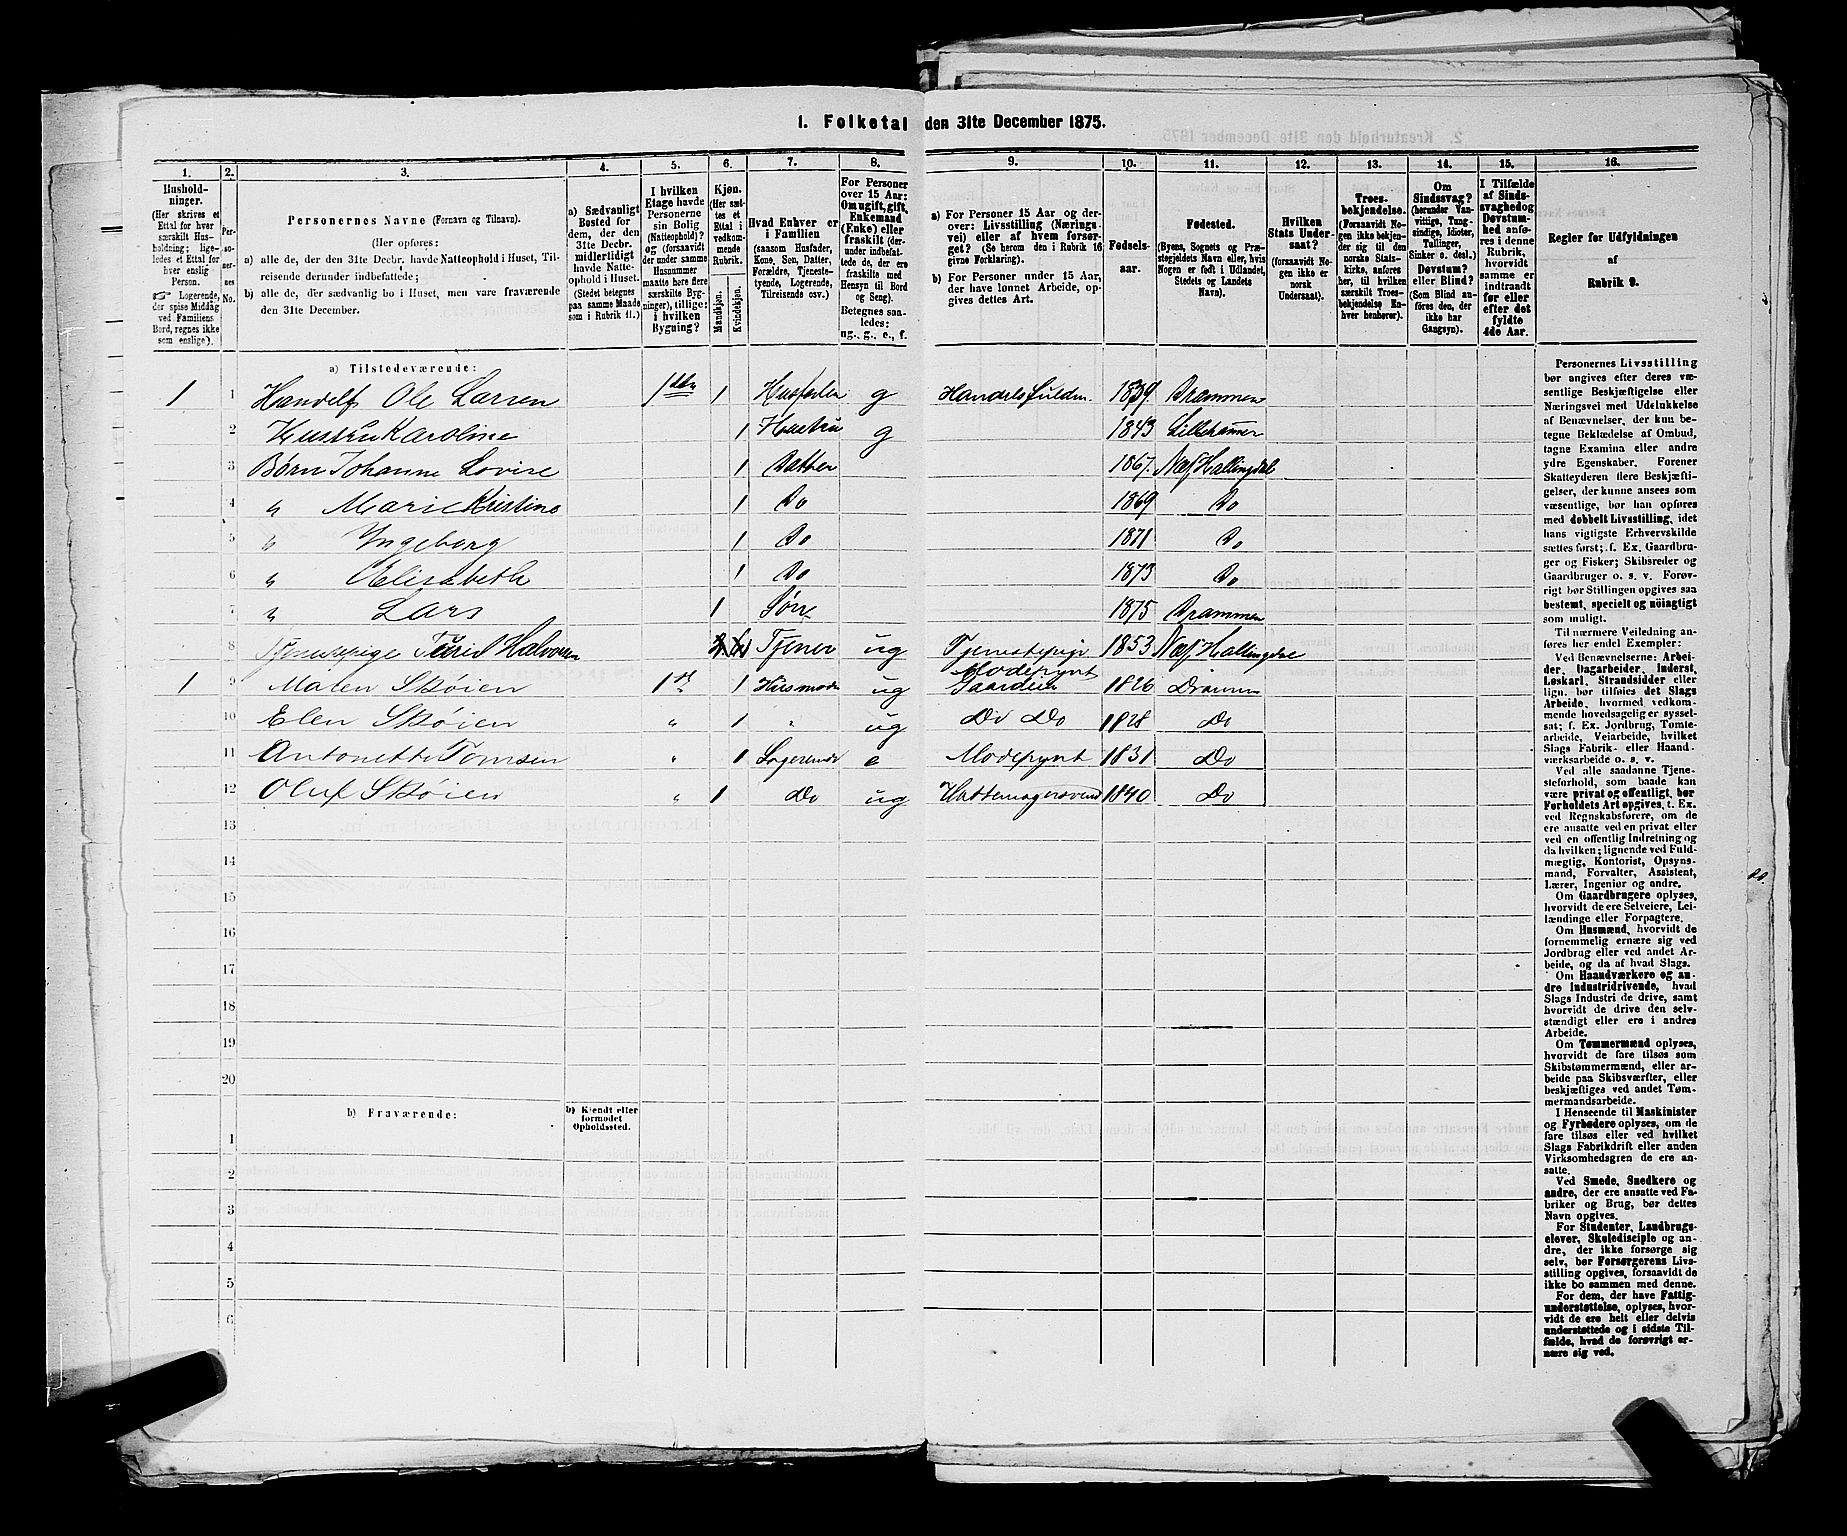 1. Folketal den 31te December 1875.
1. 2. 3. 4. 5. 6. 7. 8. 9. 10. 11. 12. 13. 14. 15. 16.
Hushold-
ninger.
(Her skrives et
Ettal for hver
særskilt Hus-
holdning; lige-
ledes et Ettal for
hver enslig
Person.
Logerende,
der spise Middag
ved Familiens
Bord, regnes ikke
som enslige).
Per-
so-
ner-
nes
No.
Personernes Navne (Fornavn og Tilnavn).
(Her opføres:
a) alle de, der den 31te Decbr. havde Natteophold i Huset, Til-
reisende derunder indbefattede;
b) alle de, der sædvanlig bo i Huset, men vare fraværende
den 31te December.
a) Sædvanligt
Bosted for
dem, der den
31te Decbr.
midlertidigt
havde Natte-
ophold i Huset.
(Stedet betegnes
paa samme Maade
som i Rubrik 11.)
I hvilken
Etage havde
Personerne
sin Bolig
(Natteophold)?
og (forsaavidt
der under samme
Husnummer
maatte høre flere
særskilte Byg-
ninger), tillige:
i hvilken
Bygning?
Kjøn.
(Her sæt-
tes et
Ettal i
vedkom-
mende
Rubrik.
Mandkjøn.
Kvindekjøn.
Hvad Enhver er
i Familien
(saasom Husfader,
Kone, Søn, Datter,
Forældre, Tjeneste-
tyende, Logerende,
Tilreisende osv.)
For Personer
over 15 Aar:
Om ugift, gift,
Enkemand
(Enke) eller
fraskilt (der-
under indbefat-
tede de, der ere
fraskilte med
Hensyn til Bord
og Seng).
Betegnes saa-
ledes:
ug., g., e., f.
a) For Personer 15 Aar og der-
over: Livsstilling (Nærings-
vei) eller af hvem forsør-
get? (Se herom den i Rubrik 16
givne Forklaring).
b) For Personer under 15 Aar,
der have lønnet Arbeide, op-
gives dettes Art.
Fødsels-
aar.
Fødested.
(Byens, Sognets og Præ-
stegjeldets Navn eller, hvis
Nogen er født i Udlandet,
Stedets og Landets
Navn).
Hvilken
Stats Under-
saat?
(forsaavidt No-
gen ikke er
norsk
Undersaat).
Troes-
bekjendelse.
(Forsaavidt No-
gen ikke bekjen-
der sig til den
norske Stats-
kirke, anføres
her, til hvilken
særskilt Troes-
bekjendelse En-
hver henhører).
Om
Sindssvag?
(herunder Van-
vittige, Tung-
sindige, Idioter,
Tullinger,
Sinker o. desl.)
Døvstum?
eller Blind?
(Som Blind an-
føres den, der
ikke har
Gangsyn).
I Tilfælde
af Sinds-
svaghed og
Døvstum-
hed anfø-
res i denne
Rubrik,
hvorvidt
samme er
indtraadt
før eller
efter det
fyldte
4de Aar.
Regler for Udfyldningen
af
Rubrik 9.
a) Tilstedeværende:
1 1 Handelsf Ole Larsen 1ste 1 Husfader g Handelsfuldm. 1839 Drammen
2 Hustru Karoline 1 Hustru g 1843 Lillehammer
3 Børn Johanne Lovise 1 Datter 1867. Næs Hallingdal
4 " Marie Kristine 1 Do 1869 Do
5 " Ingeborg 1 Do 1871 Do
6 " Elisabeth 1 Do 1873 Do
7 " Lars 1 Sön 1875 Drammen
8 Tjenestepige Halvorsen Tjener ug Tjenestepige 1853 Næs Hallingdal
1 9 Maren Skøien 1st 1 Husmoder ug Modepynt Gaardeier 1826 Drammen
10 Elen Skøien " 1 " ug Do Do 1828 Do
11 Antonette Tomsen " 1 Logerende e Modepynt 1831 Do
12 Oluf Skøien " 1 Do ug Hattemagersvend 1840 Do
13
14
15
16
17
18
19
20
b) Fraværende:
b) Kjendt eller
formodet
Opholdssted.
1
2
3
4
5
6
Personernes Livsstilling
bør angives efter deres væ-
sentlige Beskjæftigelse eller
Næringsvei med Udelukkelse
af Benævnelser, der kun be-
tegne Beklædelse af Ombud,
tagne Examina eller andre
ydre Egenskaber. Forener
Skatteyderen flere Beskjæfti-
gelser, der kunne ansees som
væsentlige, bør han opføres
med dobbelt Livsstilling, idet
hans vigtigste Erhvervskilde
sættes først; f. Ex. Gaardbru-
ger og Fisker; Skibsreder og
Gaardbruger o. s. v. Forøv-
rigt bør Stillingen opgives saa
bestemt, specielt og nöiagtigt
som muligt.
Til nærmere Veiledning an-
føres her endel Exempler:
Ved Benævnelserne: Arbei-
der, Dagarbeider, Inderst,
Løskarl, Strandsidder eller
lign. bør tilføies det Slags
Arbeide, hvormed vedkom-
mende hovedsagelig er syssel-
sat; f. Ex. Jordbrug, Tomte-
arbeide, Veiarbeide, hvilket
Slags Fabrik- eller Haand-
værksarbeide o. s. v.
Ved alle saadanne Tjene-
steforhold, som baade kan
være privat og offentligt, bør
Forholdets Art opgives, t. Ex.
ved Regnskabsførere, om de
ere ansatte ved en privat eller
ved en offentlig Indretning og
da hvilken; lignende ved Fuld-
mægtig, Kontorist, Opsyns-
mand, Forvalter, Assistent,
Lærer, Ingeniør og andre.
Om Gaardbrugere oplyses,
hvorvidt de ere Selveiere, Lei-
lændinge eller Forpagtere.
Om Husmænd, hvorvidt de
fornemmelig ernære sig ved
Jordbrug eller ved andet Ar-
beide, og da af hvad Slags.
Om Haandværkere og an-
dre Industridrivende, hvad
Slags Industri de drive, samt
hvorvidt de drive den selv-
stændigt eller ere i andres
Arbeide.
Om Tømmermænd oplyses,
hvorvidt de fare tilsøs som
Skibstømmermænd, eller ar-
beide paa Skibsværfter, eller
beskjæftiges ved andet Tøm-
mermandsarbeide.
I Henseende til Maskinister
og Fyrbødere oplyses, om de
fare tilsøs eller ved hvilket
Slags Fabrikdrift eller anden
Virksomhedsgren de ere an-
satte.
Ved Smede, Snedkere og
andre, der ere ansatte ved Fa-
briker og Brug, bør dettes
Navn opgives.
For Studenter, Landbrugs-
elever, Skoledisciple og an-
dre, der ikke forsørge sig
selv, bør Forsørgerens Livs-
stilling opgives, forsaavidt de
ikke bo sammen med denne.
For dem, der have Fattig-
understøttelse, oplyses, hvor-
vidt de ere helt eller delvis
understøttede og i sidste Til-
fælde, hvad de forøvrigt er-
nære sig ved.